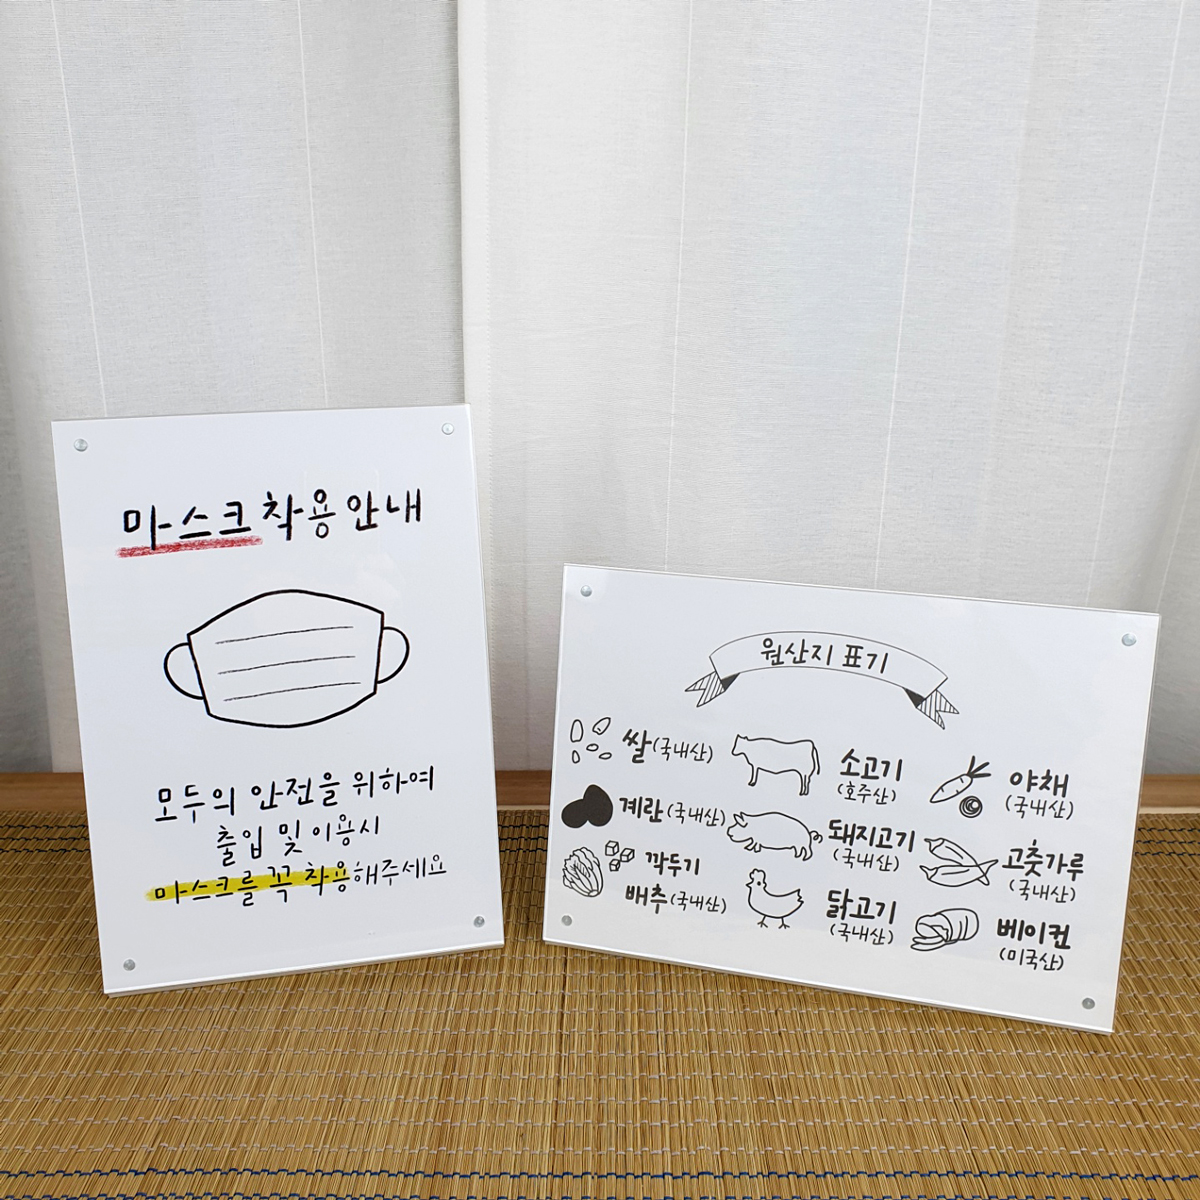 마스크 착용 안내
모두의 안전을 위하여
출입 및 이용시
마스크를 꼭 착용해주세요
원산지 표기
쌀(국내산)
계란(국내산)
깍두기
배추(국내산)
소고기
(호주산)
돼지고기
(국내산)
닭고기
(국내산)
야채
(국내산)
고춧가루
(국내산)
베이컨
(미국산)